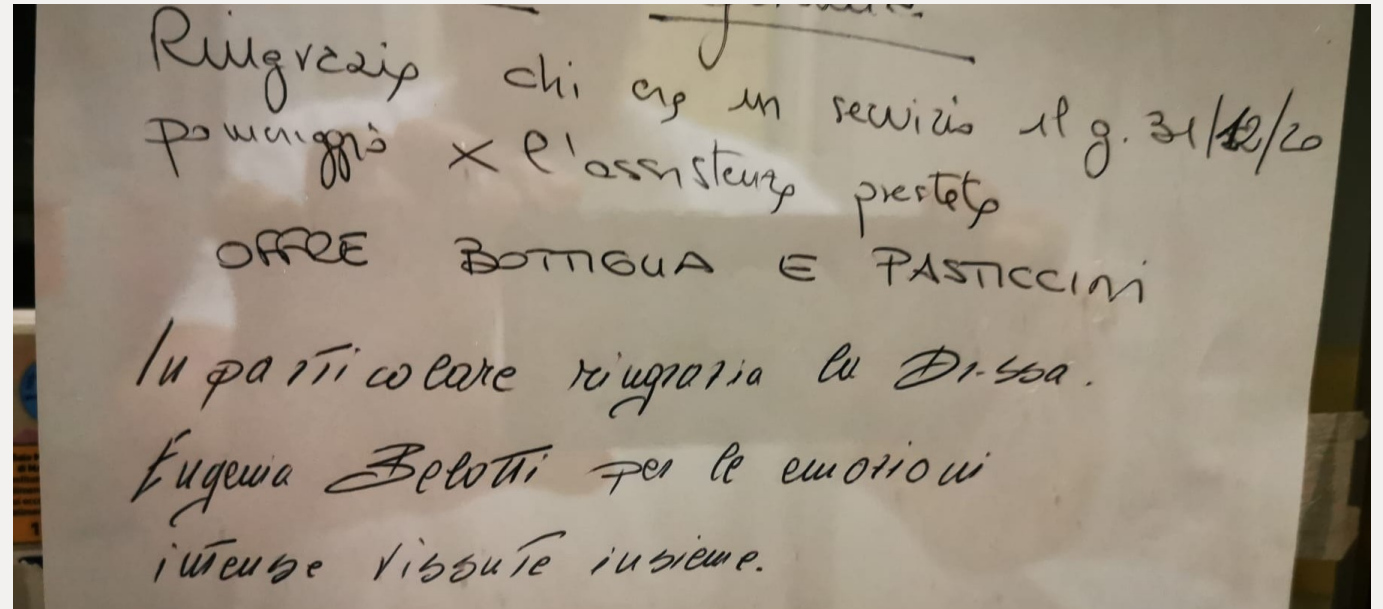 Ringrazia chi era in servizio il g. 31/12/20
pomeriggio x l'assistenza prestata
OFFRE BOTTIGLIA E PASTICCINI
In particolare ringrazia la Dr.ssa.
Eugenia Belotti per le emozioni
intense vissute insieme.